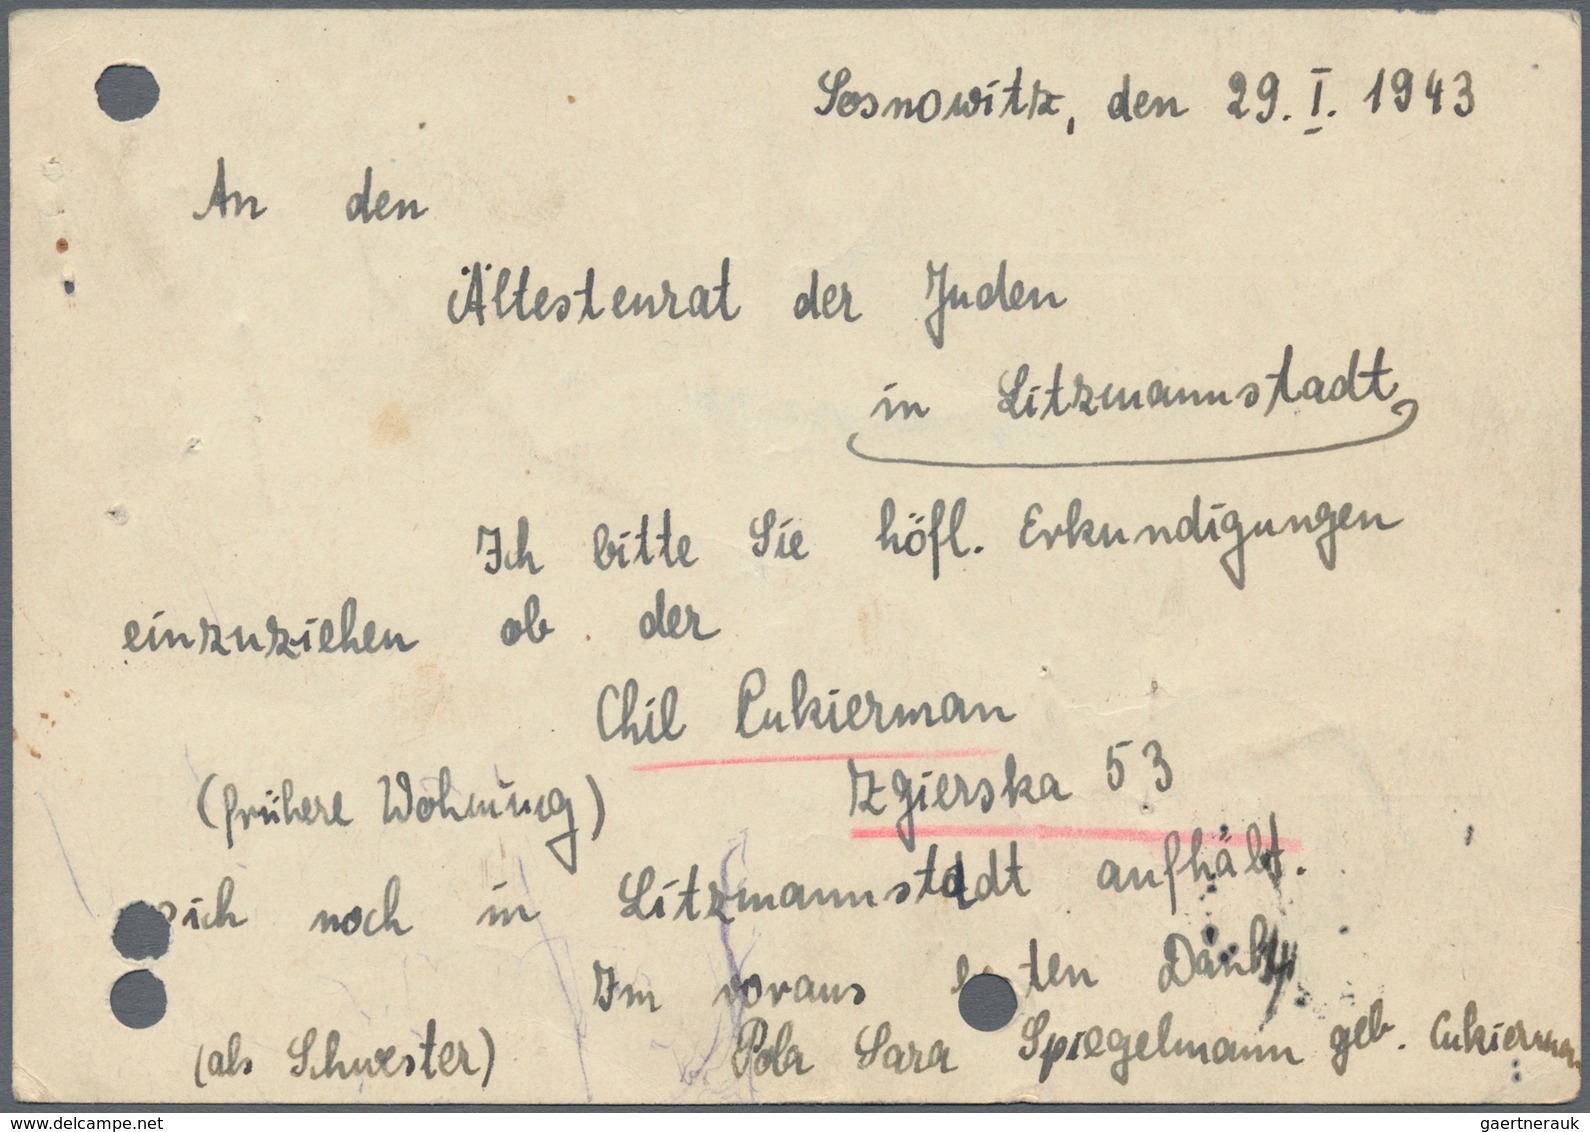 Sosnowitz, den 29. I. 1943
An den
Ältestenrat der Juden
in Litzmannstadt
Ich bitte Sie höfl. Erkundigungen
einzuziehen ob der
Chil Cukierman
(frühere Wohnung) Zgierska 53
sich noch in Litzmannstadt aufhält.
Im voraus Dank
(als Schwester) Pola Sara Spiegelmann geb. Cukierman
delcampe.net
gaertnerauk